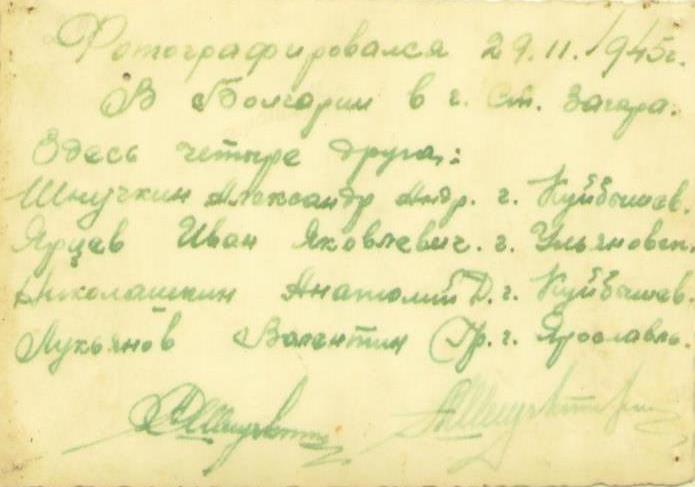 Фотографировался 29.11.1945г.
В Болгарии в г. Ст. Загара.
Здесь четыре друга:
Шнучкин Александр Андр. г. Куйбышев.
Ярцев Иван Яковлевич. г. Ульяновск.
Николашкин Анатолий Д. г. Куйбышев.
Лукьянов Валентин Гр. г. Ярославль.